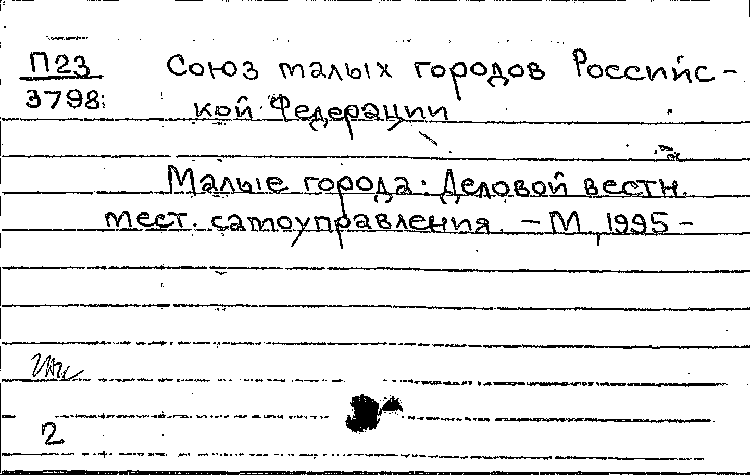 П23 Союз малых городов Российс-
3798 кой Федерации
Малые города: Деловой вестн.
мест. самоуправления. – М, 1995 –
2